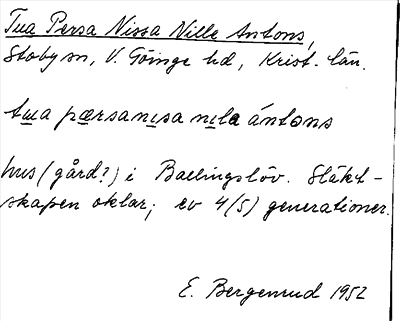 Tua Persa Nissa Nille Antons,
Stoby sn, V. Göinge hd, Krist. län.
tua pærsanisa nila ántons
hus (gård?) i Ballingslöv. Släkt-
skapen oklar; ev 4(5) generationer.
E. Bergenrud 1952